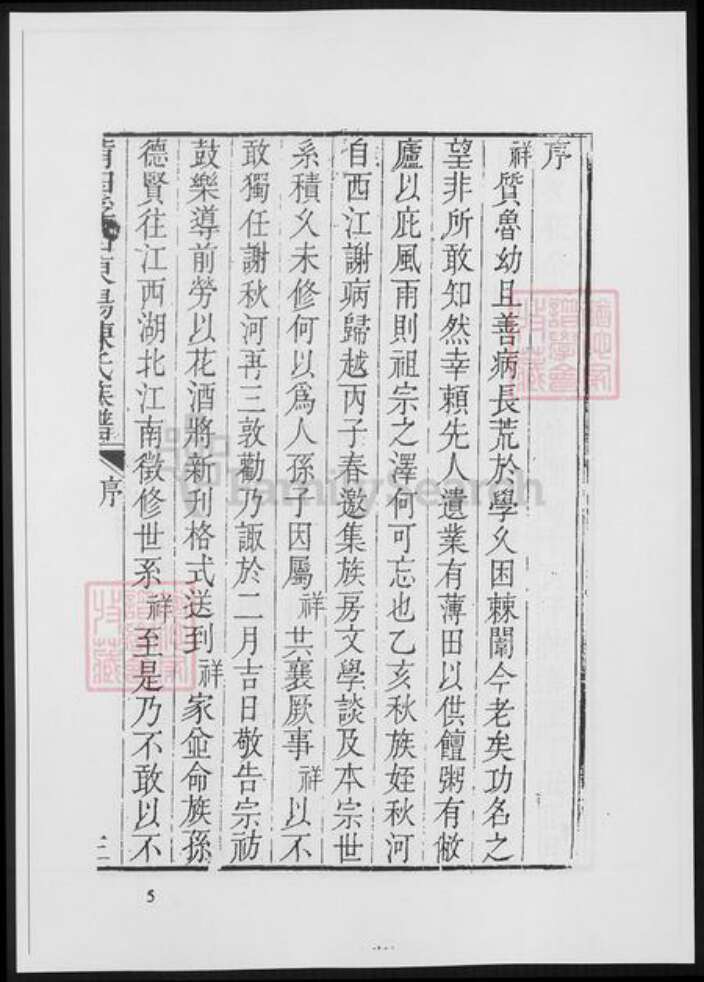 序
祥質魯幼且善病長荒於學久困棘闈今老矣功名之
望非所敢知然幸賴先人遺業有薄田以供饘粥有敝
廬以庇風雨則祖宗之澤何可忘也乙亥秋族姪秋河
自西江謝病歸越丙子春邀集族房文學談及本宗世
系積久未修何以為人孫子因屬祥共襄厥事祥以不
敢獨任謝秋河再三敦勸乃諏於二月吉日敬告宗祊
鼓樂導前勞以花酒將新刊格式送到祥家並命族孫
德賢往江西湖北江南徵修世系祥至是乃不敢以不
陳氏族譜
序
三
5
FamilySearch